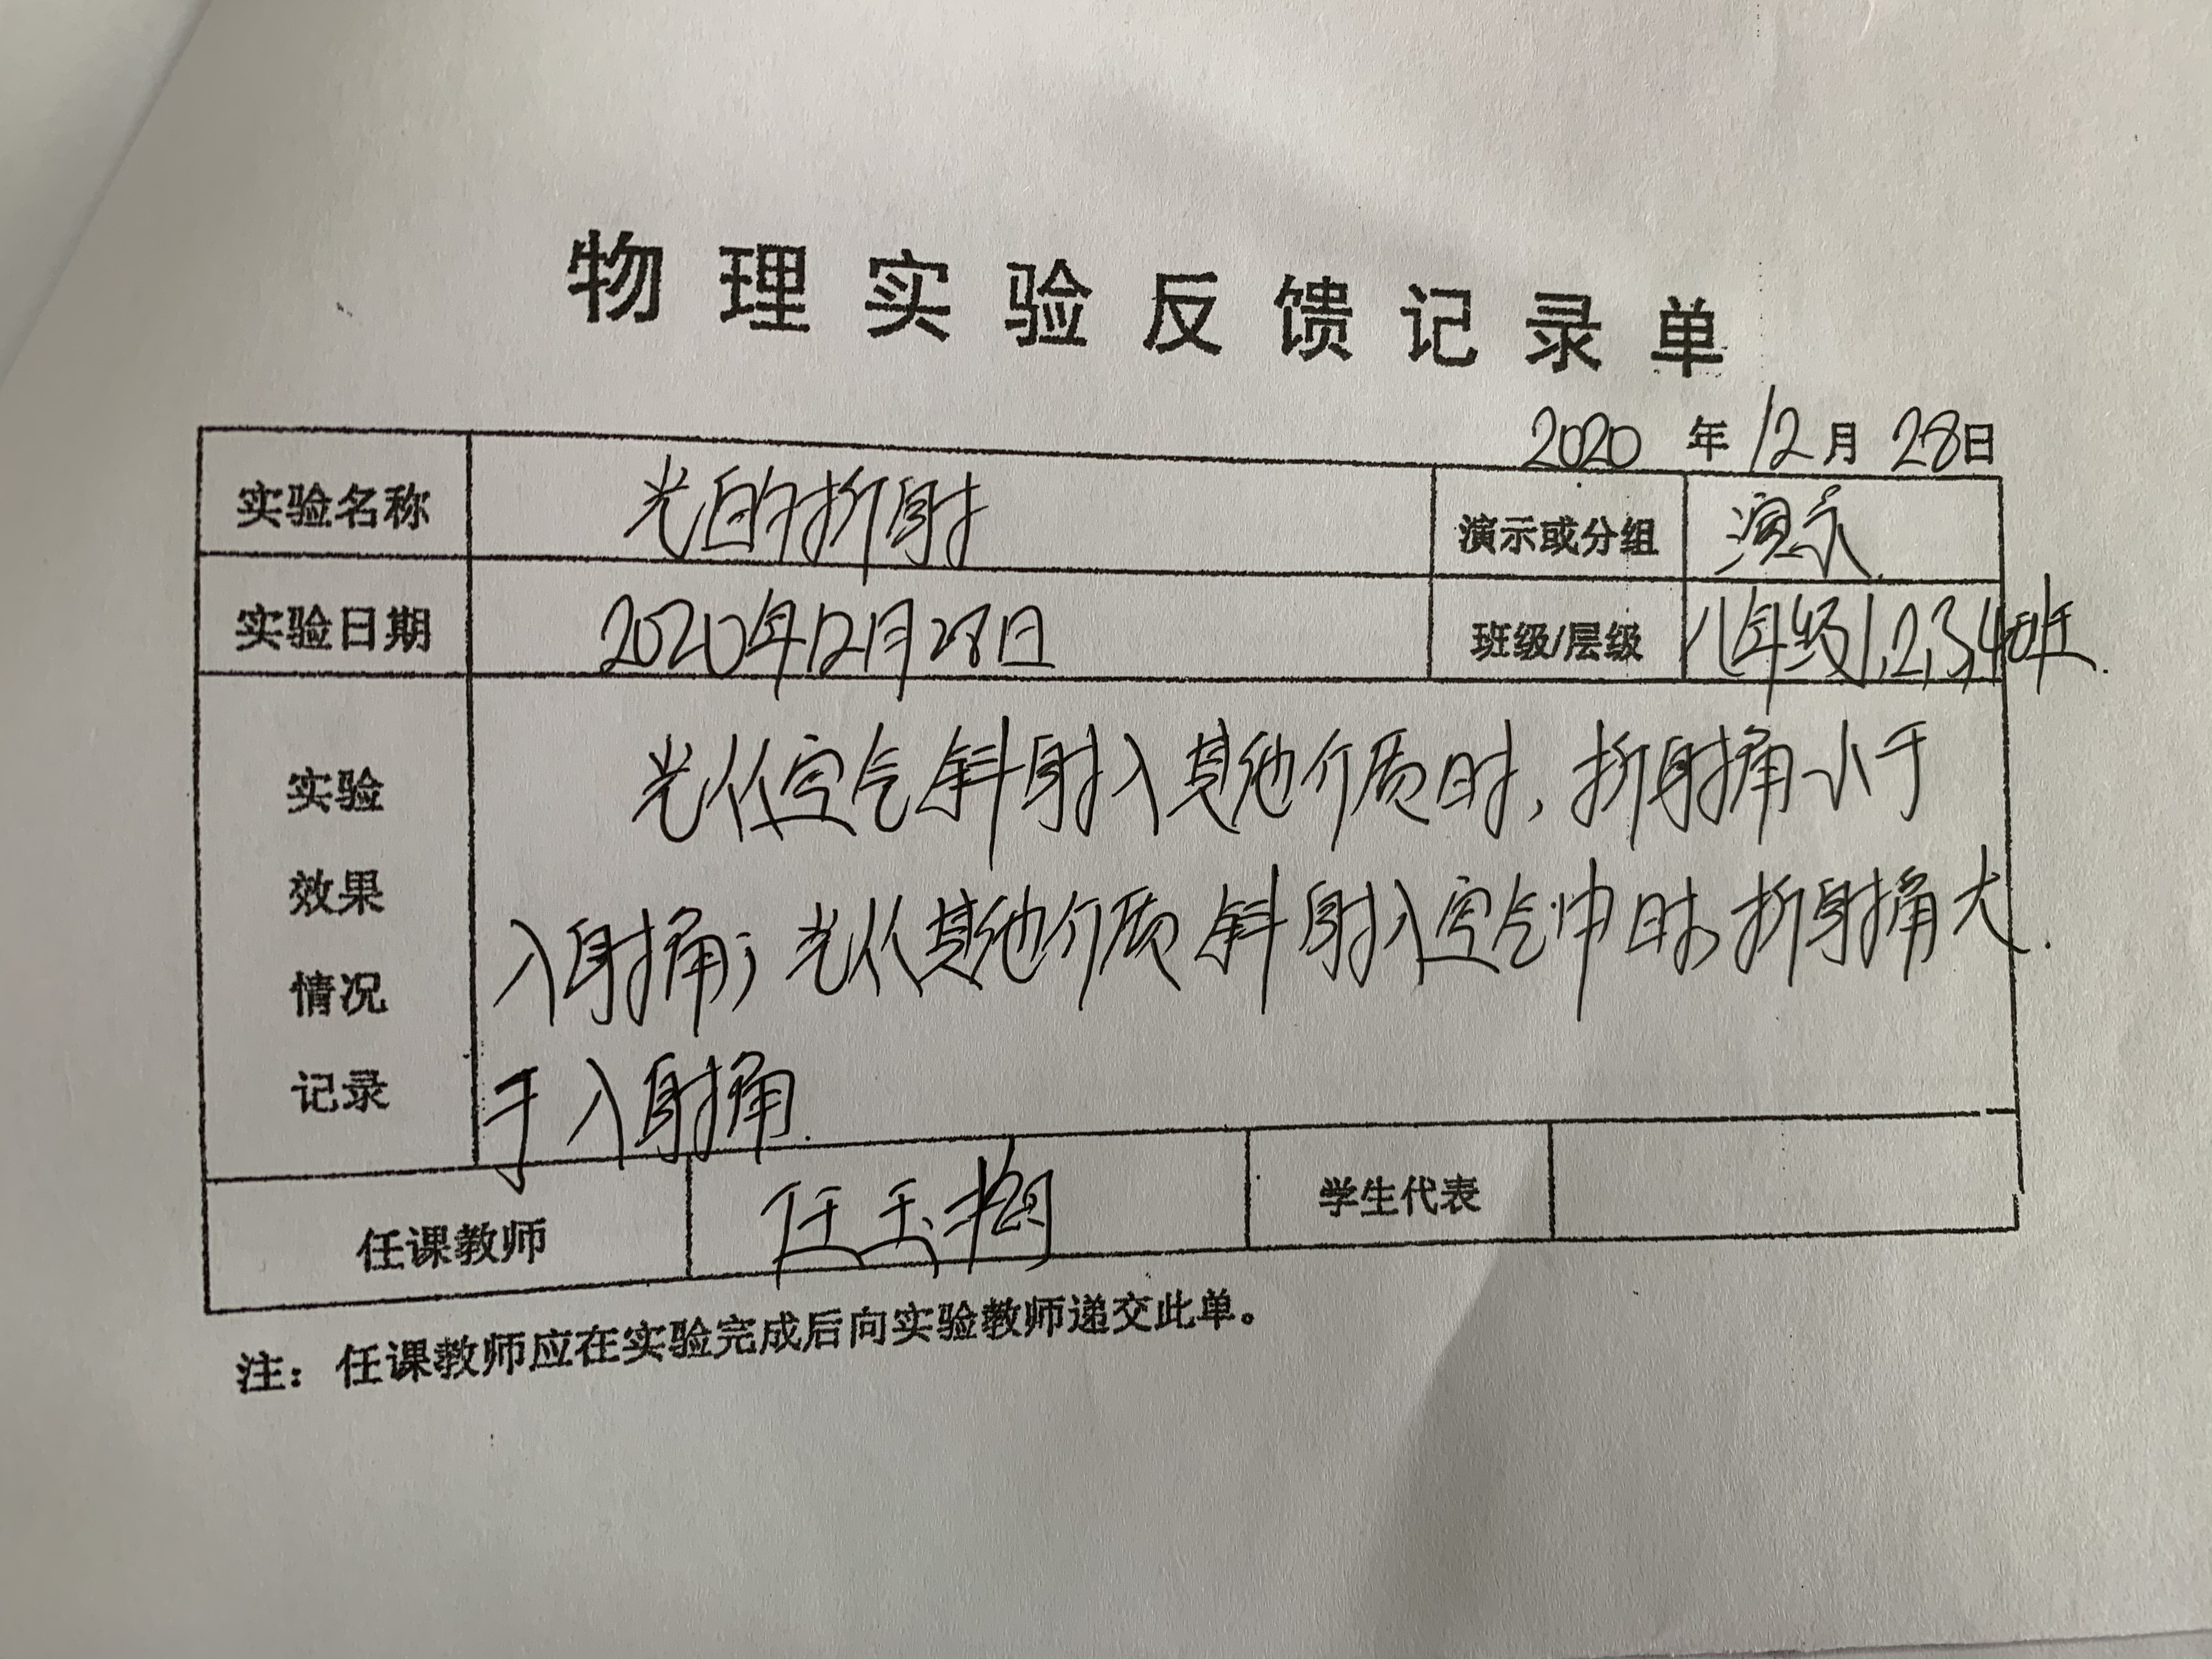 物理实验反馈记录单
2020 年 12 月 28 日
实验名称 光的折射 演示或分组 演示
实验日期 2020年12月28日 班级/层级 八年级1,2,3,4班.
实验效果情况记录
光从空气斜射入其他介质时,折射角小于
入射角;光从其他介质斜射入空气中时,折射角大
于入射角.
任课教师 任玉梅 学生代表
注：任课教师应在实验完成后向实验教师递交此单。